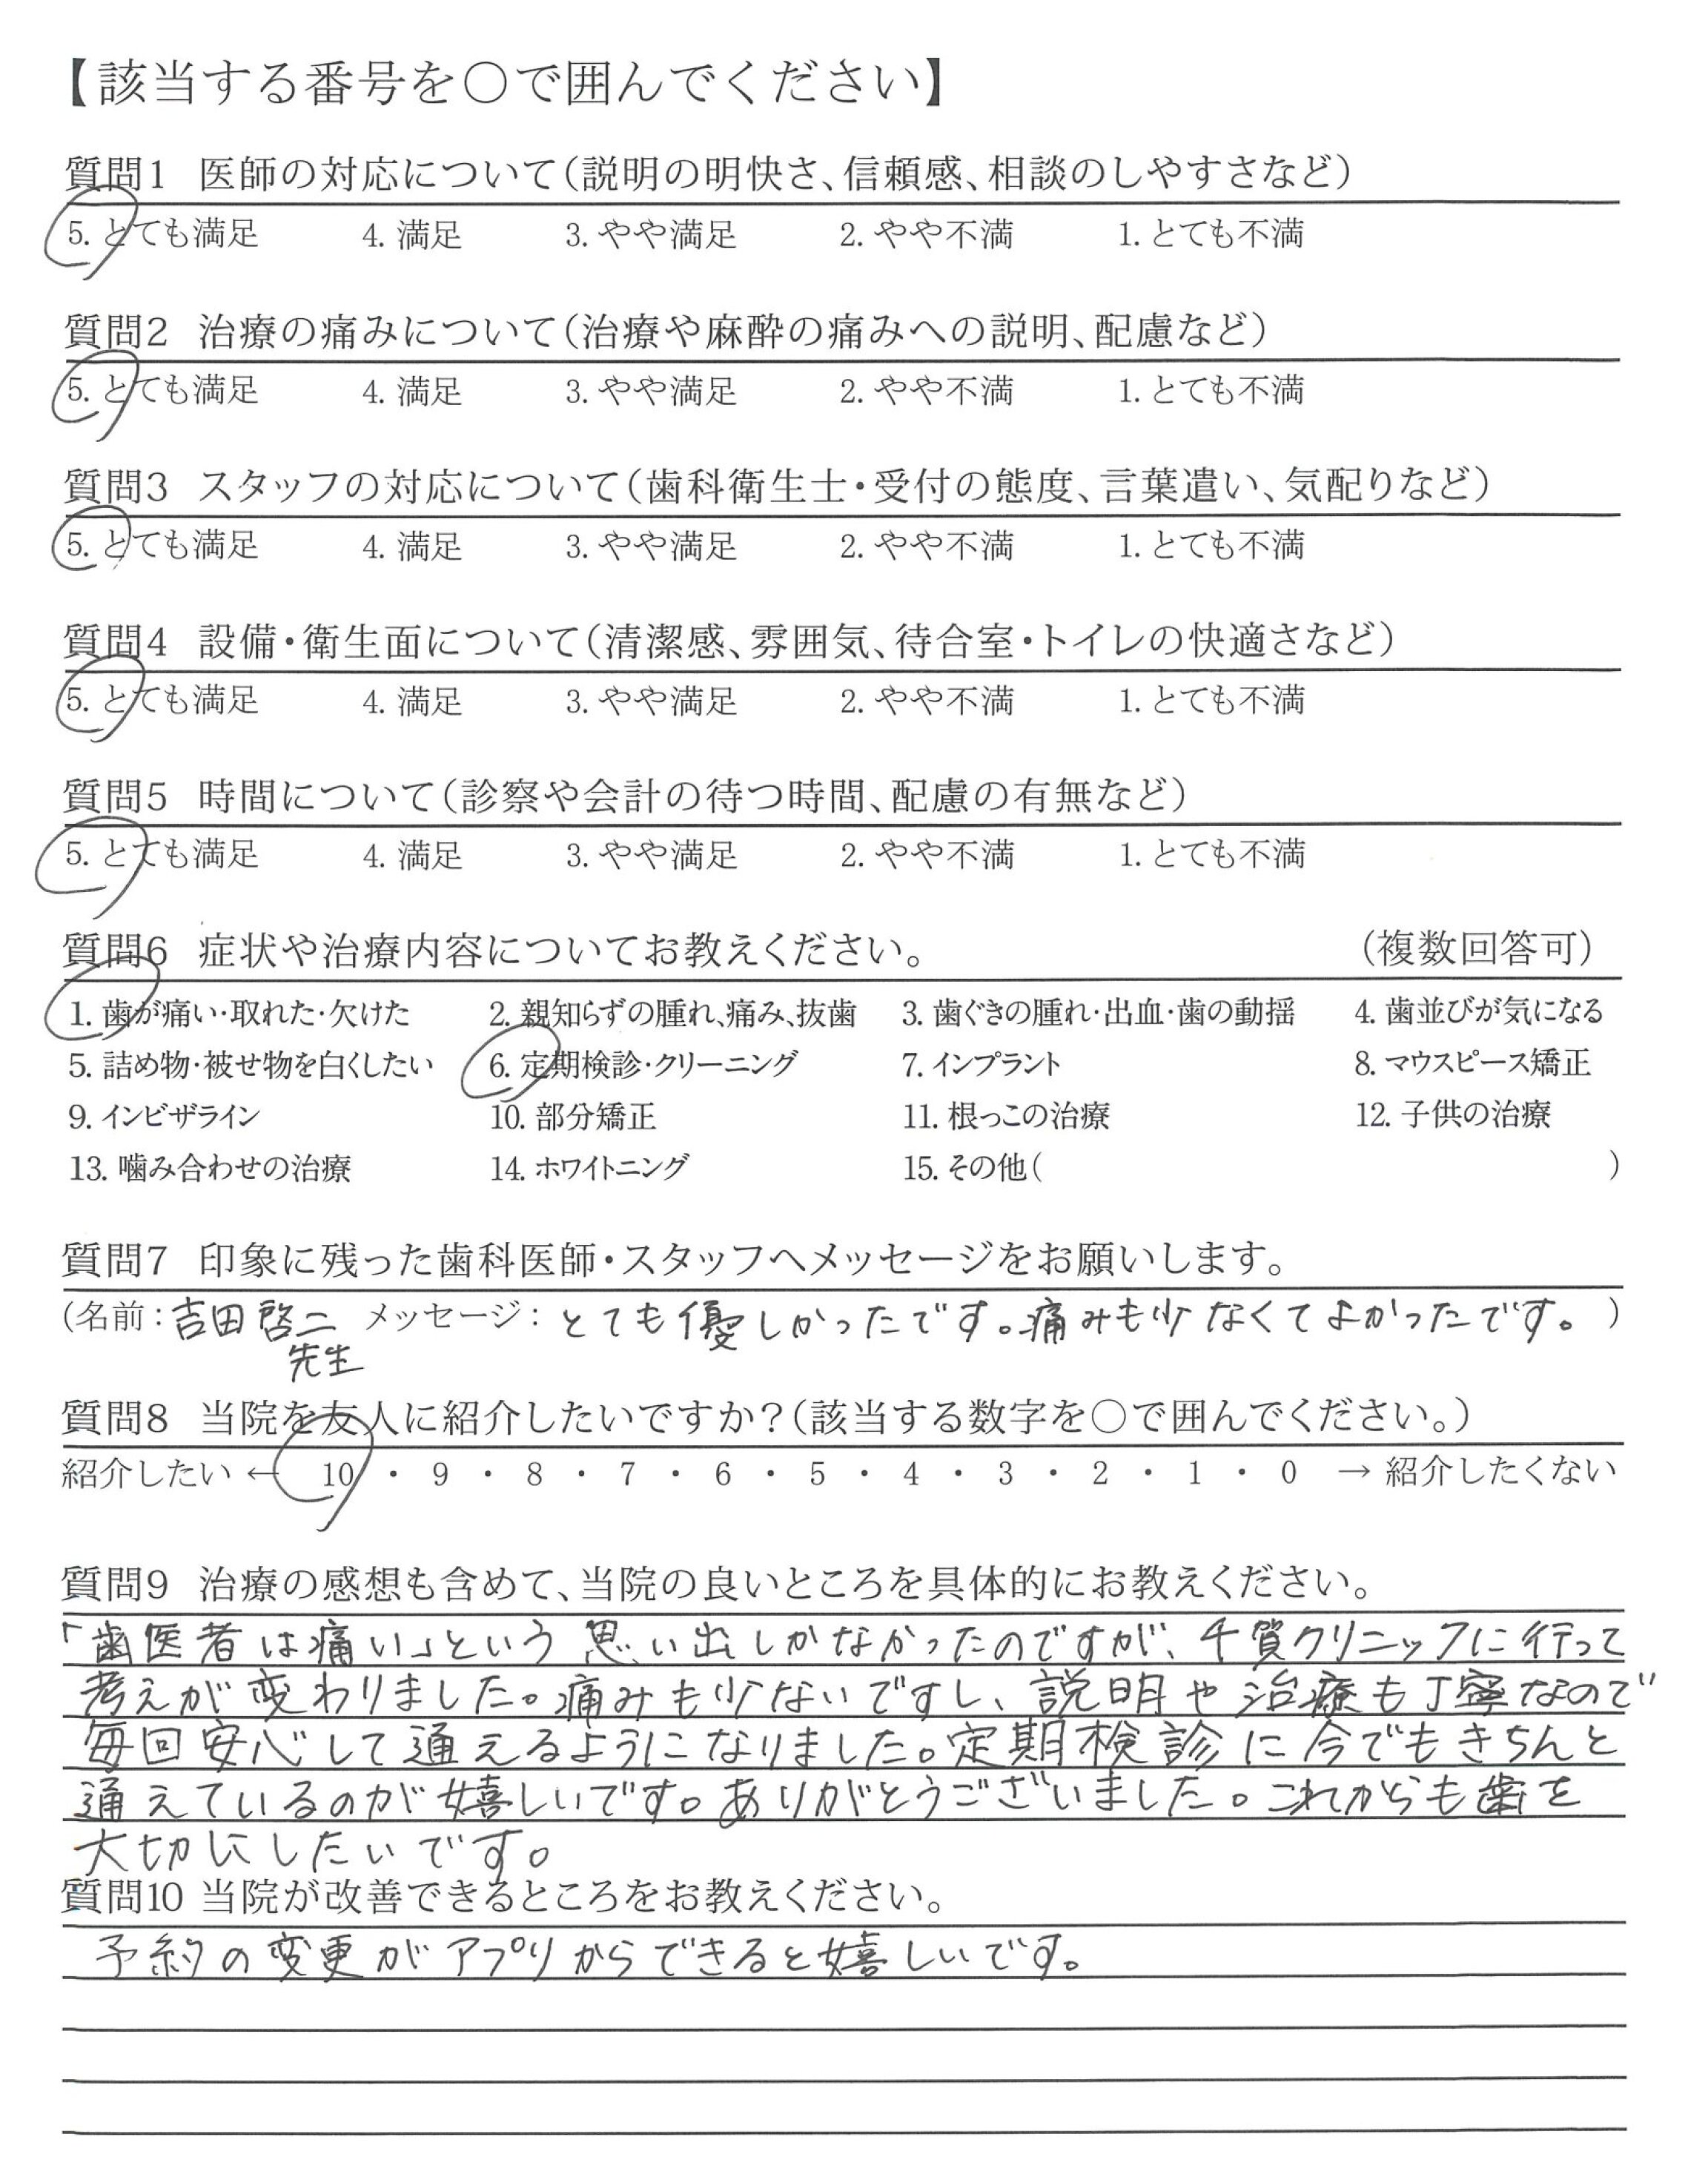 【該当する番号を○で囲んでください】
質問1 医師の対応について(説明の明快さ、信頼感、相談のしやすさなど)
5. とても満足 4. 満足 3. やや満足 2. やや不満 1. とても不満
質問2 治療の痛みについて(治療や麻酔の痛みへの説明、配慮など)
5. とても満足 4. 満足 3. やや満足 2. やや不満 1. とても不満
質問3 スタッフの対応について(歯科衛生士・受付の態度、言葉遣い、気配りなど)
5. とても満足 4. 満足 3. やや満足 2. やや不満 1. とても不満
質問4 設備・衛生面について(清潔感、雰囲気、待合室・トイレの快適さなど)
5. とても満足 4. 満足 3. やや満足 2. やや不満 1. とても不満
質問5 時間について(診察や会計の待つ時間、配慮の有無など)
5. とても満足 4. 満足 3. やや満足 2. やや不満 1. とても不満
質問6 症状や治療内容についてお教えください。 (複数回答可)
1. 歯が痛い・取れた・欠けた 2. 親知らずの腫れ、痛み、抜歯 3. 歯ぐきの腫れ・出血・歯の動揺 4. 歯並びが気になる
5. 詰め物・被せ物を白くしたい 6. 定期検診・クリーニング 7. インプラント 8. マウスピース矯正
9. インビザライン 10. 部分矯正 11. 根っこの治療 12. 子供の治療
13. 噛み合わせの治療 14. ホワイトニング 15. その他( )
質問7 印象に残った歯科医師・スタッフへメッセージをお願いします。
(名前：吉田啓二 メッセージ：とても優しかったです。痛みも少なくてよかったです。)
先生
質問8 当院を友人に紹介したいですか?(該当する数字を○で囲んでください。)
紹介したい ← 10 ・ 9 ・ 8 ・ 7 ・ 6 ・ 5 ・ 4 ・ 3 ・ 2 ・ 1 ・ 0 → 紹介したくない
質問9 治療の感想も含めて、当院の良いところを具体的にお教えください。
「歯医者は痛い」という思い出しかなかったのですが、千賀クリニックに行って
考えが変わりました。痛みも少ないですし、説明や治療も丁寧なので
毎回安心して通えるようになりました。定期検診に今でもきちんと
通えているのが嬉しいです。ありがとうございました。これからも歯を
大切にしたいです。
質問10 当院が改善できるところをお教えください。
予約の変更がアプリからできると嬉しいです。